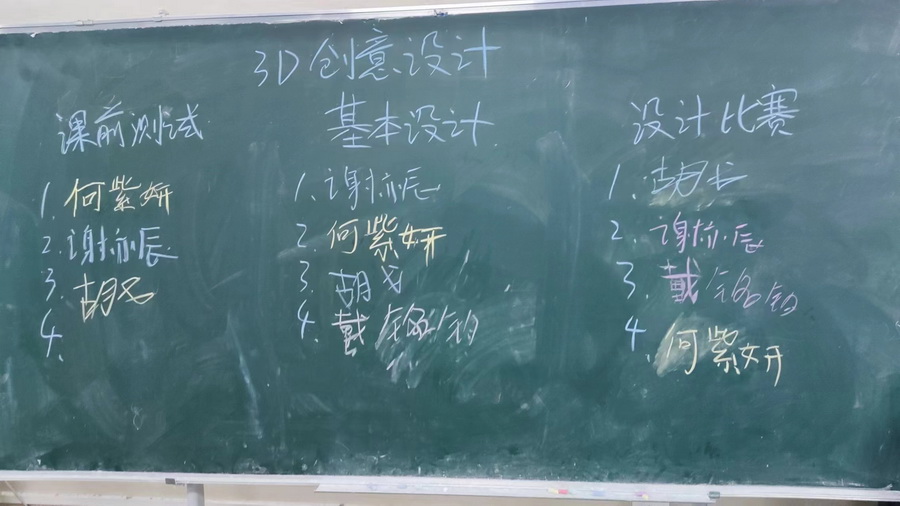 3D创意设计
课前测试
1.何紫妍
2.谢亦辰
3.胡戈
4.
基本设计
1.谢亦辰
2.何紫妍
3.胡戈
4.戴铭钧
设计比赛
1.胡
2.谢亦辰
3.戴铭钧
4.何紫妍